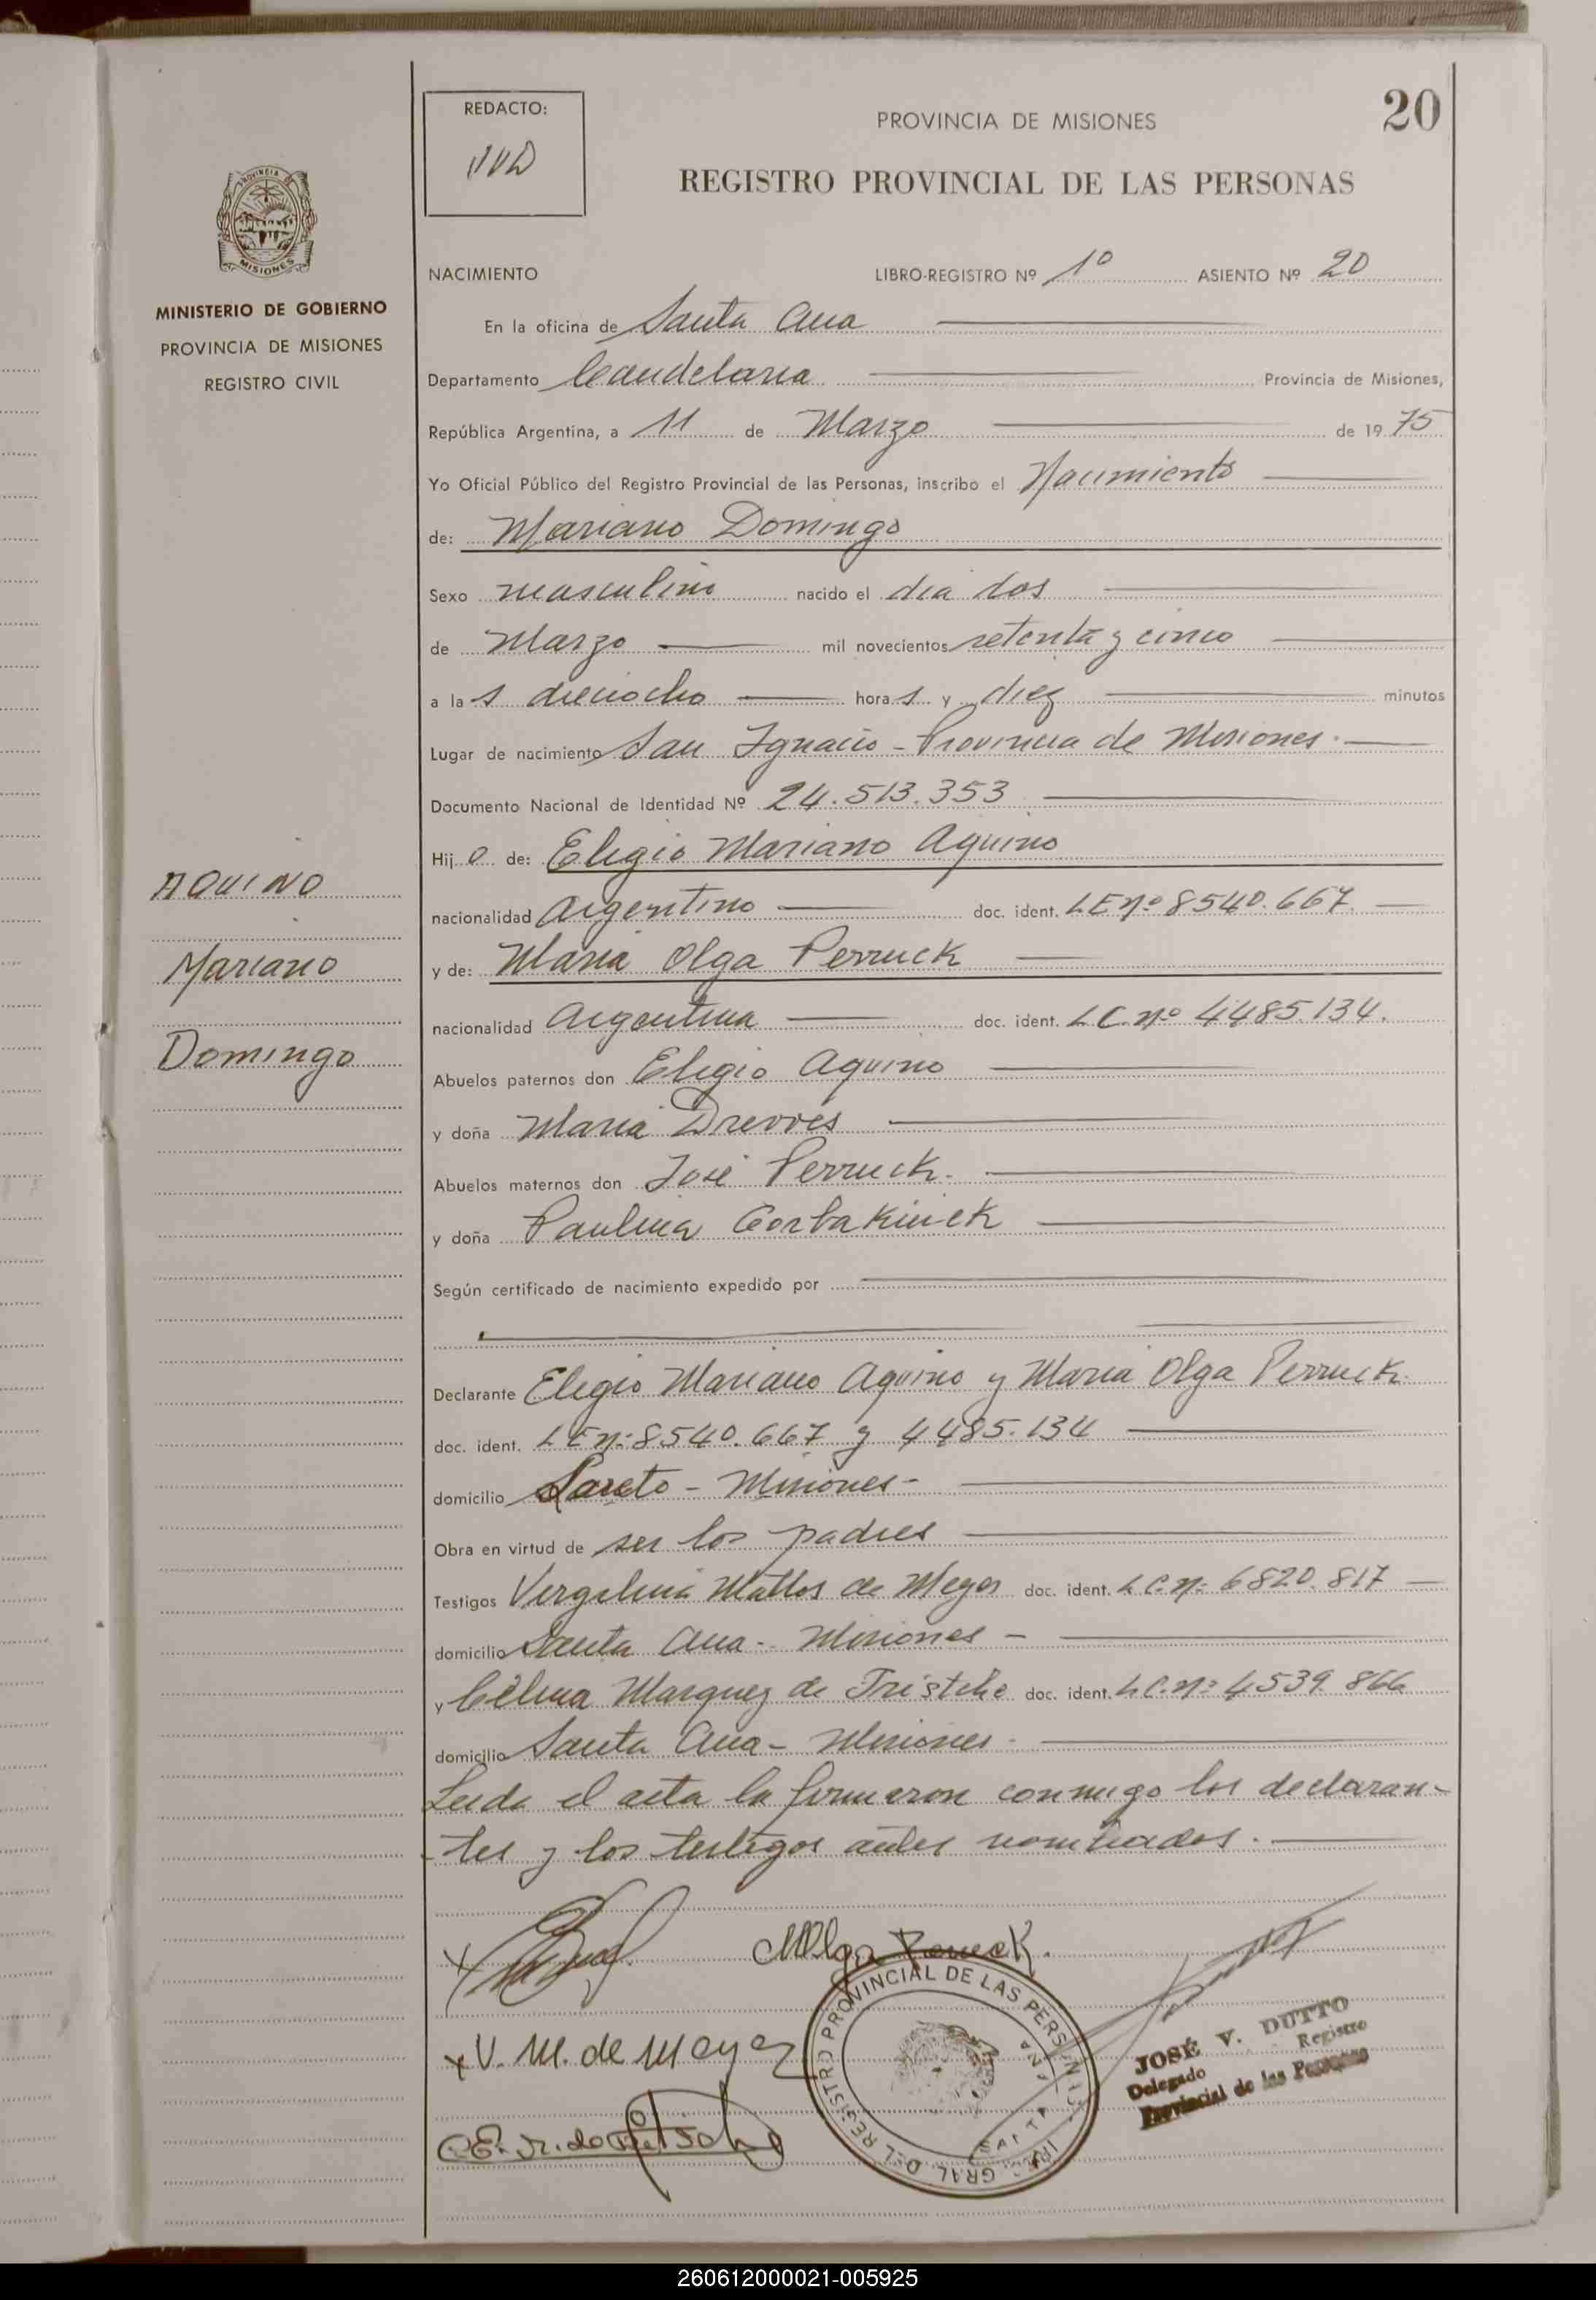 20
REDACTO:
PROVINCIA DE MISIONES
REGISTRO PROVINCIAL DE LAS PERSONAS
MISIONES
MINISTERIO DE GOBIERNO
PROVINCIA DE MISIONES
REGISTRO CIVIL
AQUINO
Mariano
Domingo
NACIMIENTO LIBRO-REGISTRO Nº 1º ASIENTO Nº 20
En la oficina de Santa Ana
Departamento Candelaria Provincia de Misiones,
República Argentina, a 11 de Marzo de 19 75
Yo Oficial Público del Registro Provincial de las Personas, inscribo el Nacimiento
de: Mariano Domingo
Sexo masculino nacido el dia dos
de Marzo mil novecientos setenta y cinco
a la s dieciocho hora s y diez minutos
Lugar de nacimiento San Ignacio - Provincia de Misiones.
Documento Nacional de Identidad Nº 24.513.353
Hij o de: Elegio Mariano Aquino
nacionalidad Argentino doc. ident. LE nº 8540.667.
y de: Maria Olga Perruck
nacionalidad Argentina doc. ident. L.C. nº 4485.134.
Abuelos paternos don Elegio Aquino
y doña Maria Drevves
Abuelos maternos don José Perruck.
y doña Paulina Gorbakiuek
Según certificado de nacimiento expedido por
Declarante Elegio Mariano Aquino y Maria Olga Perruck.
doc. ident. LE nº 8540.667 y 4485.134
domicilio Loreto - Misiones -
Obra en virtud de ser los padres
Testigos Vergilina Mattos de Meyer doc. ident. L.C. nº 6820.817
domicilio Santa Ana - Misiones -
y Célina Marquez de Tristche doc. ident. L.C. nº 4.539.866
domicilio Santa Ana - Misiones -
Leida el acta la firmaron conmigo los declaran-
-tes y los testigos antes nombrados.
MOlga Perruck.
x V. M. de Meyer
REGISTRO PROVINCIAL DE LAS PERS
SANTA ANA
GRAL DEL
JOSÉ V. DUTTO
Delegado Registro
Provincial de las Personas
260612000021-005925